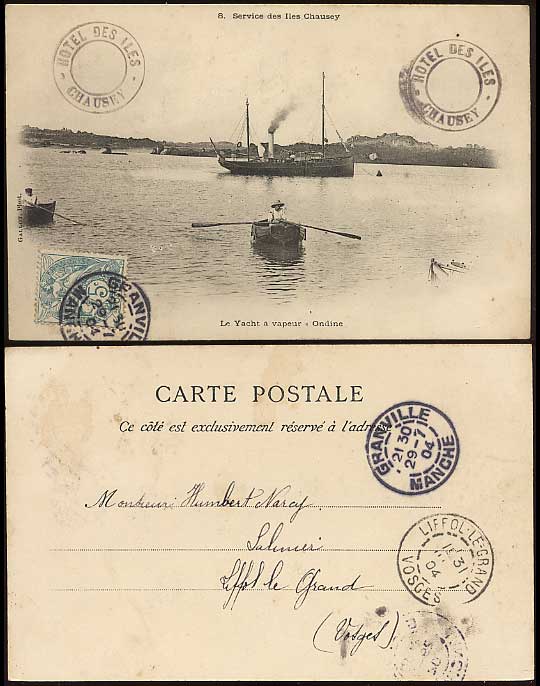 8. Service des Iles Chausey
HOTEL DES ILES
CHAUSEY
HOTEL DES ILES
CHAUSEY
5
GRANVILLE
MANCHE
Le Yacht à vapeur « Ondine
CARTE POSTALE
Ce côté est exclusivement réservé à l'adresse
GRANVILLE
21 30
29-7
04
MANCHE
Monsieur Humbert Narcy
Liffol le Grand
(Vosges)
LIFFOL-LE-GRAND
31
04
VOSGES